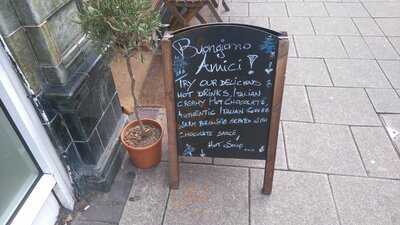 Buongiorno
Amici!
Try our delicious
Hot drinks: Italian
creamy Hot Chocolate &
Authentic Italian Coffee
Warm brownies served with
chocolate sauce
Hot Soup ...